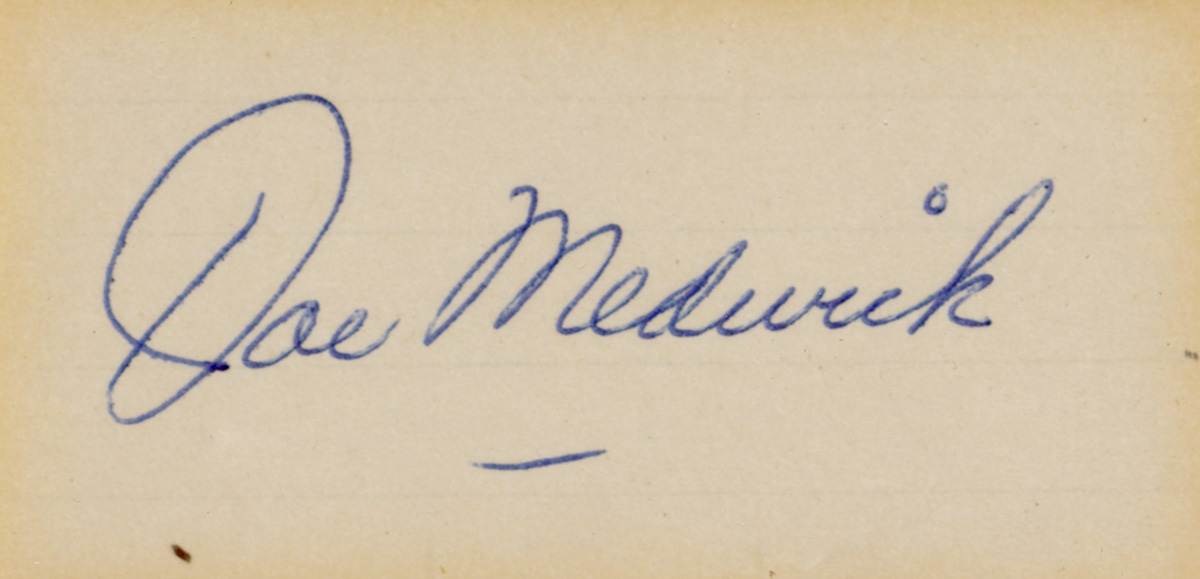 Joe Medwick